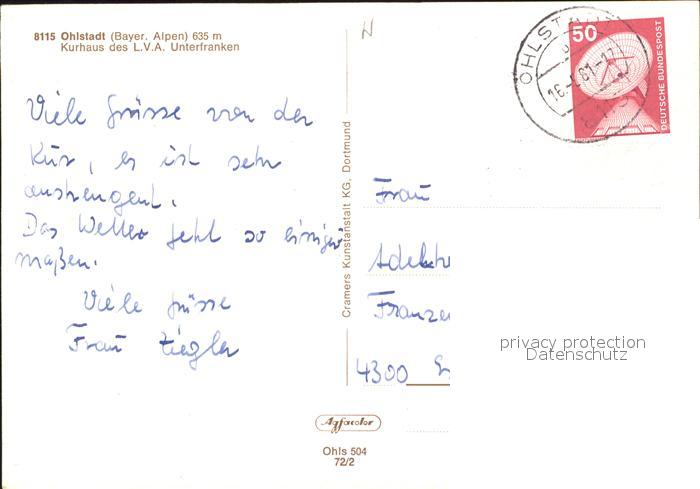 8115 Ohlstadt (Bayer. Alpen) 635 m
Kurhaus des L.V.A. Unterfranken
Viele Grüsse von der
Kur, es ist sehr
anstrengent.
Das Wetter geht so einiger
maßen.
Viele Grüsse
Frau Ziegler
Cramers Kunstanstalt KG, Dortmund
50
DEUTSCHE BUNDESPOST
OHLSTADT
Frau
Adelh
Franze
4300 E
privacy protection
Datenschutz
Agfacolor
Ohls 504
72/2